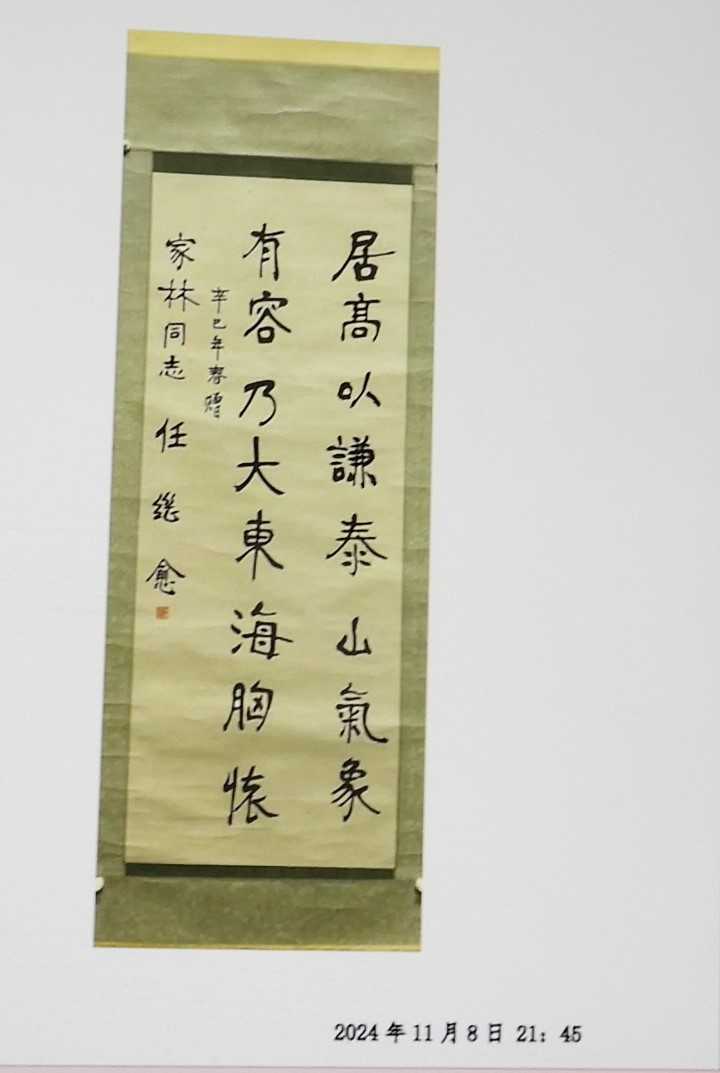 居高以謙泰山氣象
有容乃大東海胸懷
辛巳年春贈
家林同志 任继愈
2024年11月8日 21: 45